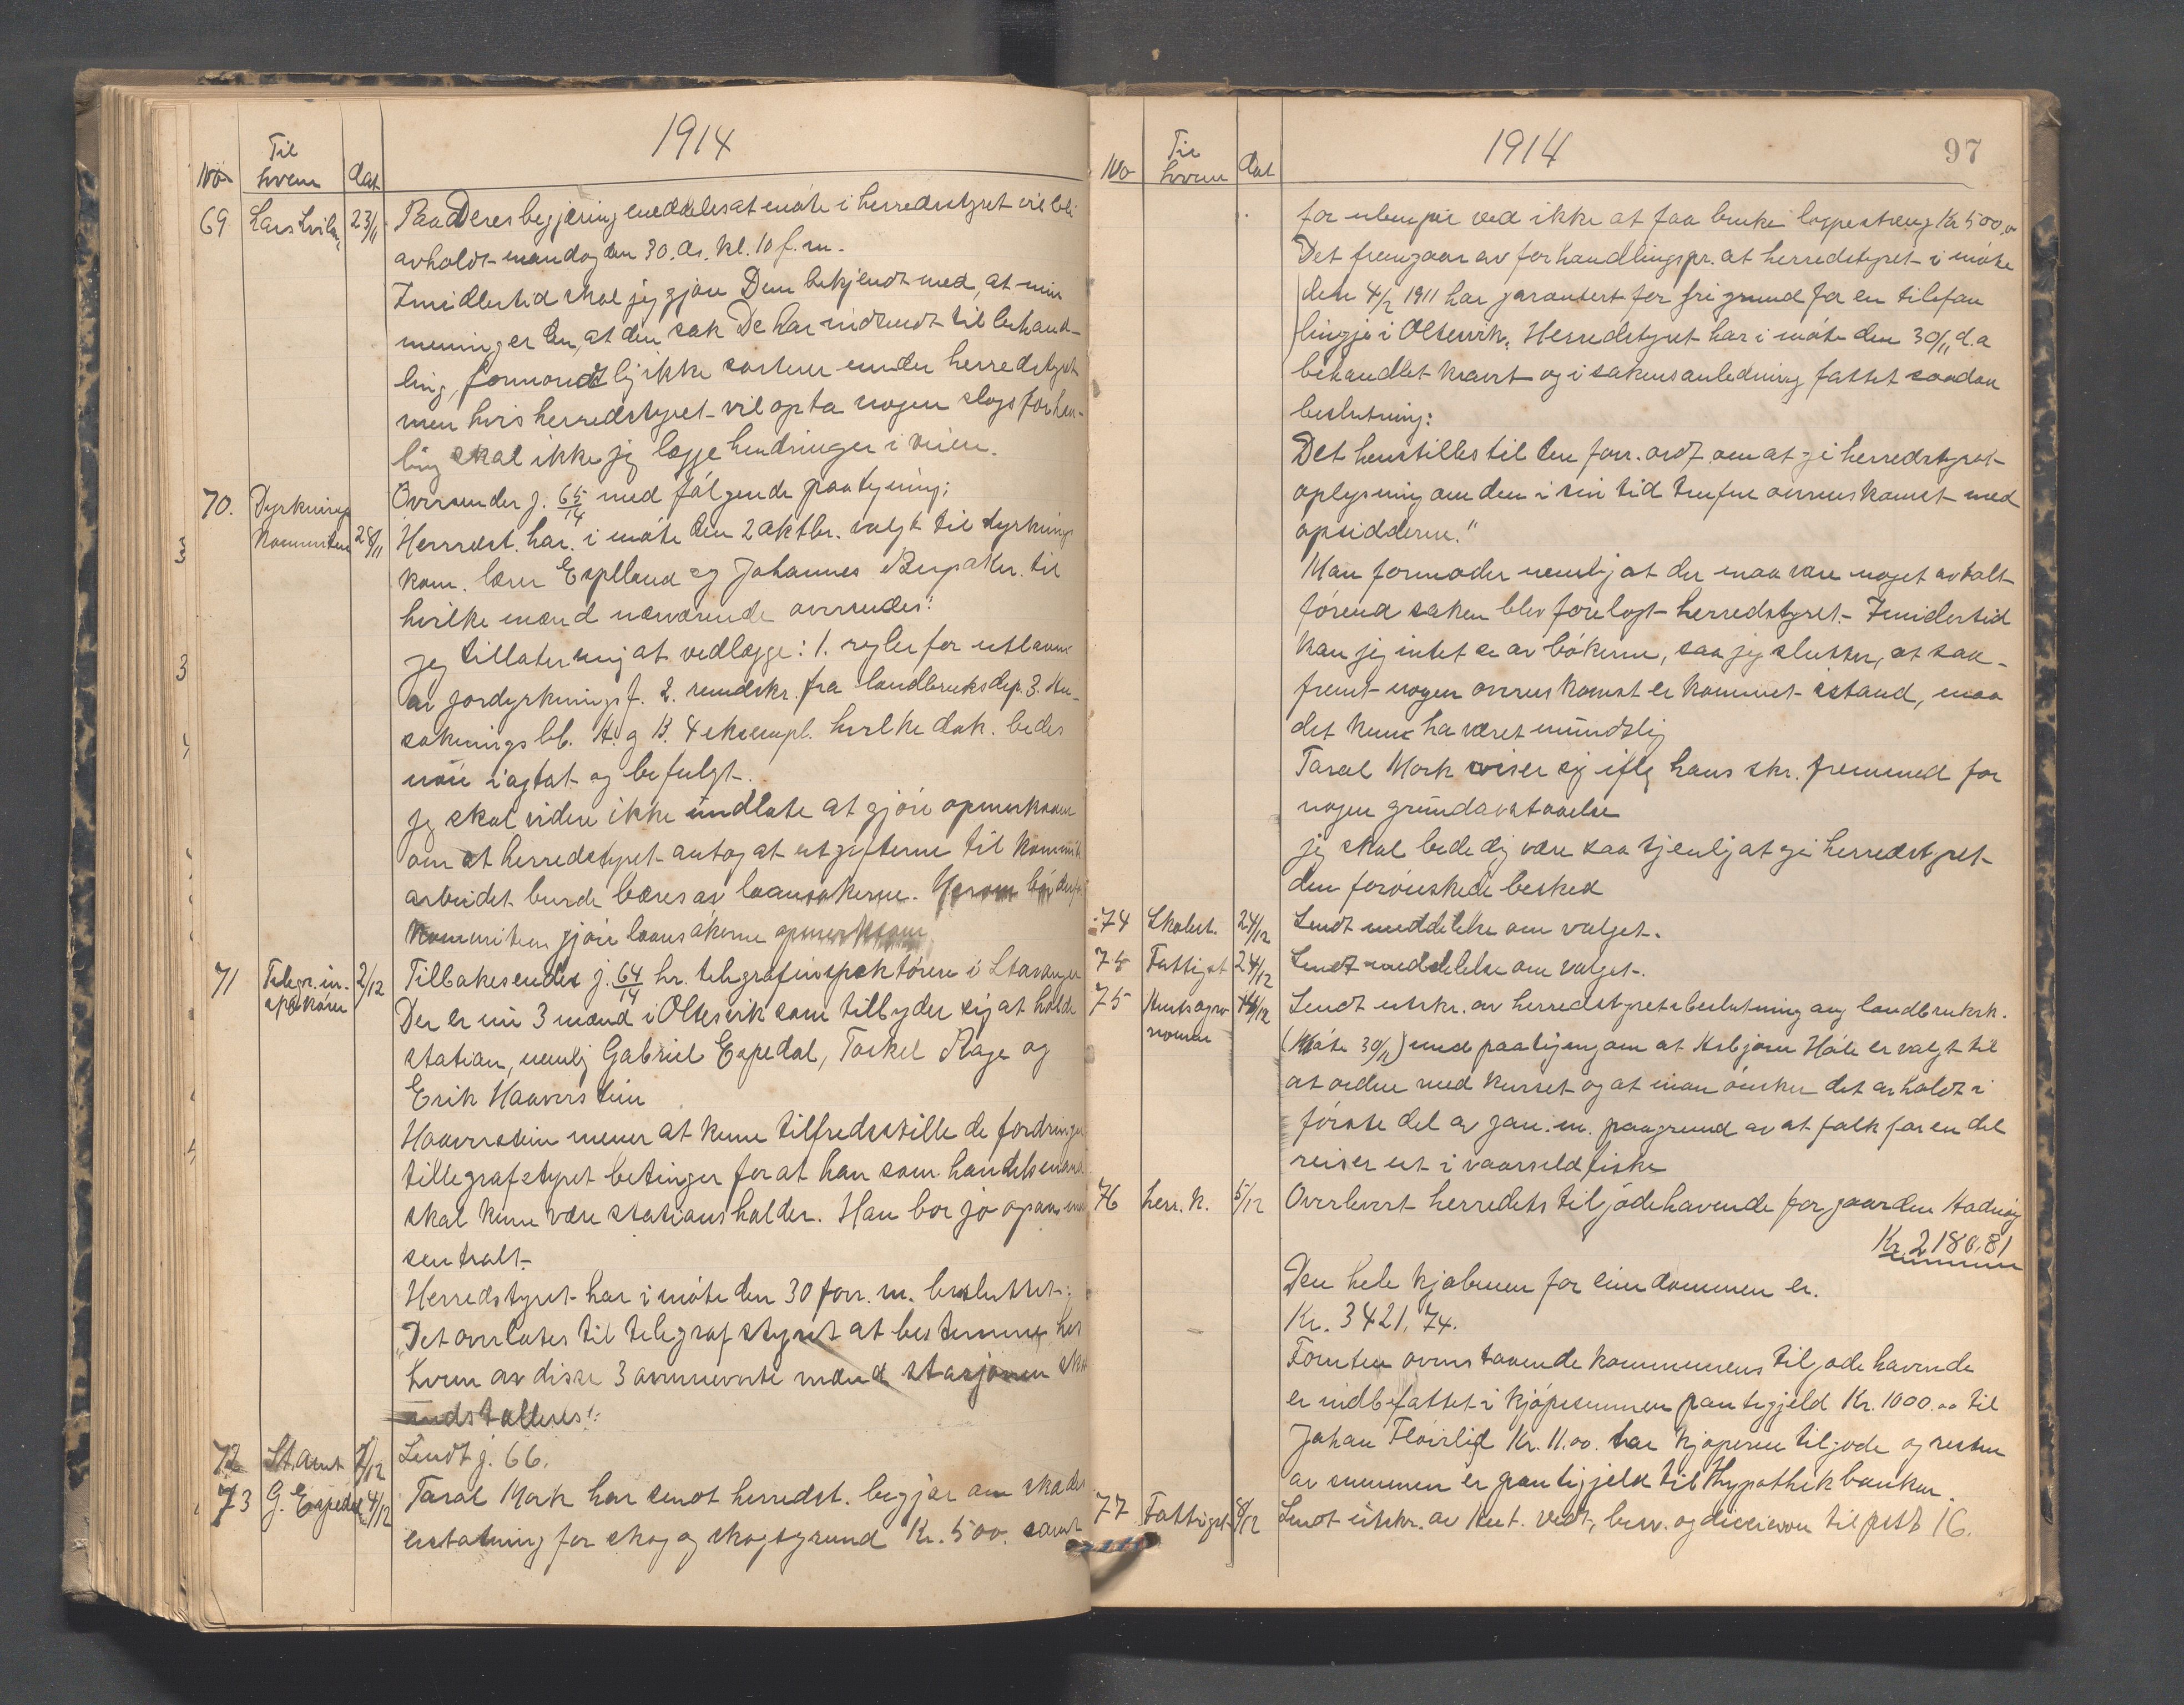 1914
No Til hvem dat
69 Lars 23/11 Paa Deres begjæring meddeles at møte i herredstyret vil bli
avholdt mandag den 30. ds. kl. 10 f.m.
Imidlertid skal jeg gjøre Dem bekjendt med, at min
mening er den, at den sak De har indsendt til behand-
ling, formodtlig ikke sorterer under herredstyret
men hvis herredstyret vil opta nogen slags forhan-
ling skal ikke jeg lægge hindringer i veien.
70. Dyrknings Oversender j. 65/14 med følgende paategning;
kommiteen 28/11 Herredst. har i møte den 2 oktbr. valgt til dyrknings
kom. lærer Espeland og Johannes til
hvilke mænd nærværende oversendes".
jeg tillater mig at vedlægge: 1. regler for utlaan
av jordyrkningsf. 2. rundskr. fra landbruksdep. 3. An-
søknings bl. A. og B. 4 eksempl. hvilke dok. bedes
nøie iagtat og befulgt.
jeg skal videre ikke undlate at gjøre opmerksom
om at herredstyret antog at utgifterne til kommite
arbeidet burde bæres av laansøkerne.
kommiteen gjøre laansøkerne opmerksom
71 Telegr. in- 2/12 Tilbakesendes j. 64/14 hr. telegrafinspektøren i Stavanger
spektøren Der er nu 3 mænd i Oltesvik som tilbyder sig at holde
station, nemlig Gabriel Espedal, Torkel Rage og
Erik Haaverstein
Haaverstein mener at kunne tilfredsstille de fordringer
tillegrafstyret betinger for at han som handelsmand
skal kunne være stationsholder. Han bor jo
sentralt.
Herredstyret har i møte den 30 forr. m. besluttet:
"Det overlates til telegraf styret at bestemme hos
hvem av disse 3 ovennevnte mænd stasjonen skal
indstalleres".
72 St. amt 2/12 Sendt j. 66.
73 G. Espedal 4/12 Taral Mork har sendt herredst. begjær om skades
erstatning for skog og skogsgrund Kr. 500. samt
1914 97
No Til hvem dat
for ulemper ved ikke at faa bruke løypestreng Kr 500,00
Det fremgaar av forhandlingspr. at herredstyret i møte
den 4/2 1911 har garantert for fri grund for en tilefon
linje i Oltesvik. Herredstyret har i møte den 30/11 d.a
behandlet kravet og i sakens anledning fattet saadan
beslutning:
Det henstilles til den forr. ordf. om at gi herredstyret
oplysning om den i sin tid trufne overenskomst med
opsidderne."
Man formoder nemlig at der maa være noget avtalt
førend saken blev forelagt herredstyret. Imidertid
kan jeg intet se av bøkerne, saa jeg slutter, at saa-
fremt nogen overenskomst er kommet istand, maa
det kun ha været mundtlig
Taral Mork viser sig iflg hans skr. fremmed for
nogen grundavstaaelse
jeg skal bede dig være saa tjenlig at gi herredstyret
den forønskede besked
74 Skolest. 24/12 Sendt meddelelse om valget.
75 Fattigst 24/12 Sendt meddelelse om valget.
75 Amtsagro 12 Sendt utskr. av herredstyretsbeslutning ang landbruksk.
nomen (Møte 30/11) med paategning om at Asbjørn Høle er valgt til
at ordne med kurset og at man ønsker det avholdt i
første del av jan. m. paagrund av at folk for en del
reiser ut i vaarsildfiske
76 herr. k. 5/12 Overlevert herredets tilgodehavende for gaarden
Kr. 2180.81
Den hele kjøbesum for eiendommen er.
Kr. 3421,74.
Foruten ovenstaaende kommunens tilgode havende
er indbefattet i kjøpesummen pantegjeld Kr. 1000.00 til
Johan Fløirlig Kr. 11.00. har kjøperen tilgode og resten
av summen er pantegjeld til Hypothekbanken.
77 Fattigst 8/12 Sendt utskr. av herredst. vedt. og til post 16.